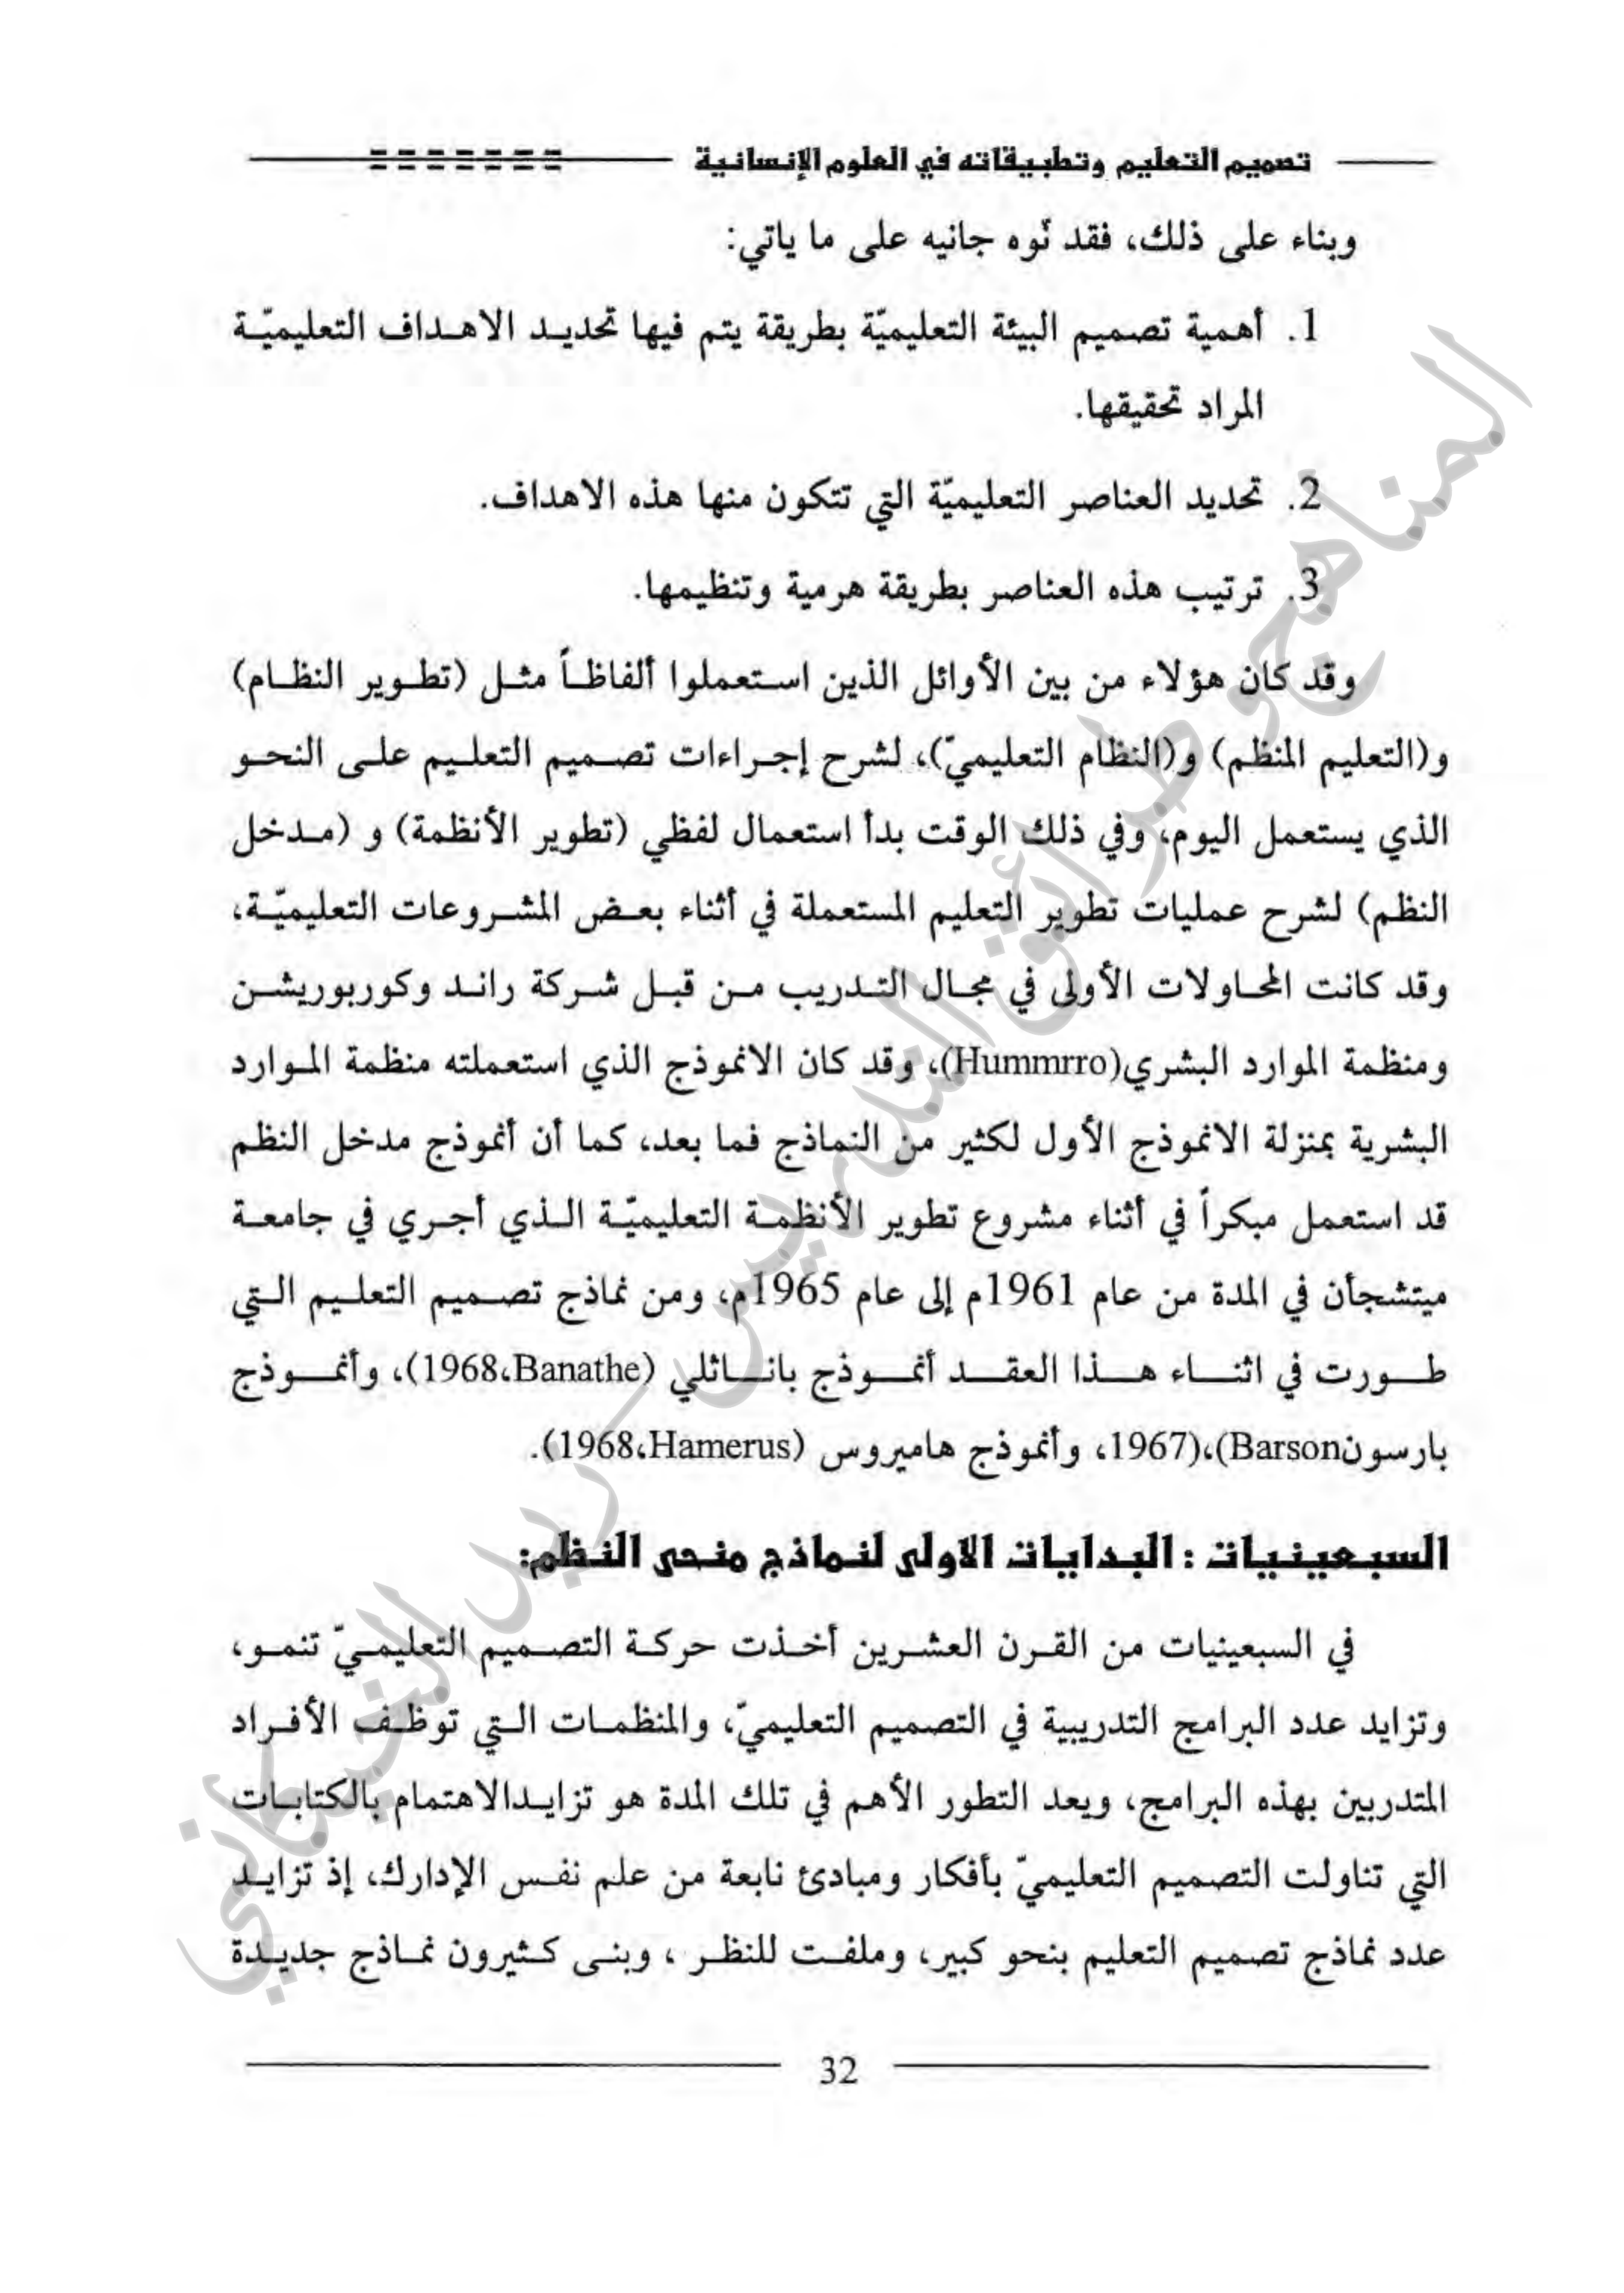 تصميم التعليم وتطبيقاته في العلوم الإنسانية
وبناء على ذلك، فقد نّوه جانيه على ما ياتي:
1. أهمية تصميم البيئة التعليميّة بطريقة يتم فيها تحديد الاهداف التعليميّة
المراد تحقيقها.
2. تحديد العناصر التعليميّة التي تتكون منها هذه الاهداف.
3. ترتيب هذه العناصر بطريقة هرمية وتنظيمها.
وقد كان هؤلاء من بين الأوائل الذين استعملوا ألفاظاً مثل (تطوير النظام)
و(التعليم المنظم) و(النظام التعليميّ)، لشرح إجراءات تصميم التعليم على النحو
الذي يستعمل اليوم، وفي ذلك الوقت بدأ استعمال لفظي (تطوير الأنظمة) و (مدخل
النظم) لشرح عمليات تطوير التعليم المستعملة في أثناء بعض المشروعات التعليميّة،
وقد كانت المحاولات الأولى في مجال التدريب من قبل شركة راند وكوربوريشن
ومنظمة الموارد البشري(Hummrro)، وقد كان الانموذج الذي استعملته منظمة الموارد
البشرية بمنزلة الانموذج الأول لكثير من النماذج فما بعد، كما أن أنموذج مدخل النظم
قد استعمل مبكراً في أثناء مشروع تطوير الأنظمة التعليميّة الذي أجري في جامعة
ميتشجأن في المدة من عام 1961م إلى عام 1965م، ومن نماذج تصميم التعليم التي
طورت في اثناء هذا العقد أنموذج باناثلي (Banathe،1968)، وأنموذج
بارسونBarson)،(1967، وأنموذج هاميروس (Hamerus،1968).
السبعينيات : البدايات الاولى لنماذج منحى النظم:
في السبعينيات من القرن العشرين أخذت حركة التصميم التعليميّ تنمو،
وتزايد عدد البرامج التدريبية في التصميم التعليميّ، والمنظمات التي توظف الأفراد
المتدربين بهذه البرامج، ويعد التطور الأهم في تلك المدة هو تزايدالاهتمام بالكتابات
التي تناولت التصميم التعليميّ بأفكار ومبادئ نابعة من علم نفس الإدارك، إذ تزايد
عدد نماذج تصميم التعليم بنحو كبير، وملفت للنظر ، وبنى كثيرون نماذج جديدة
32
المناهج وطرائق التدريس - ريد الخيكاني